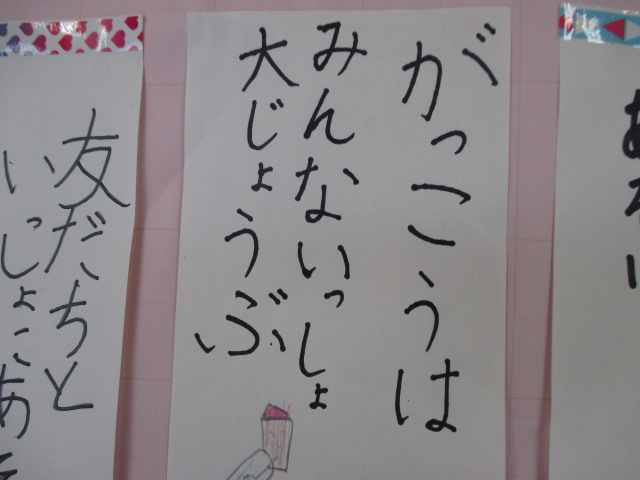 がっこうは
みんないっしょ
大じょうぶ
友だちと
いっしょにあそ